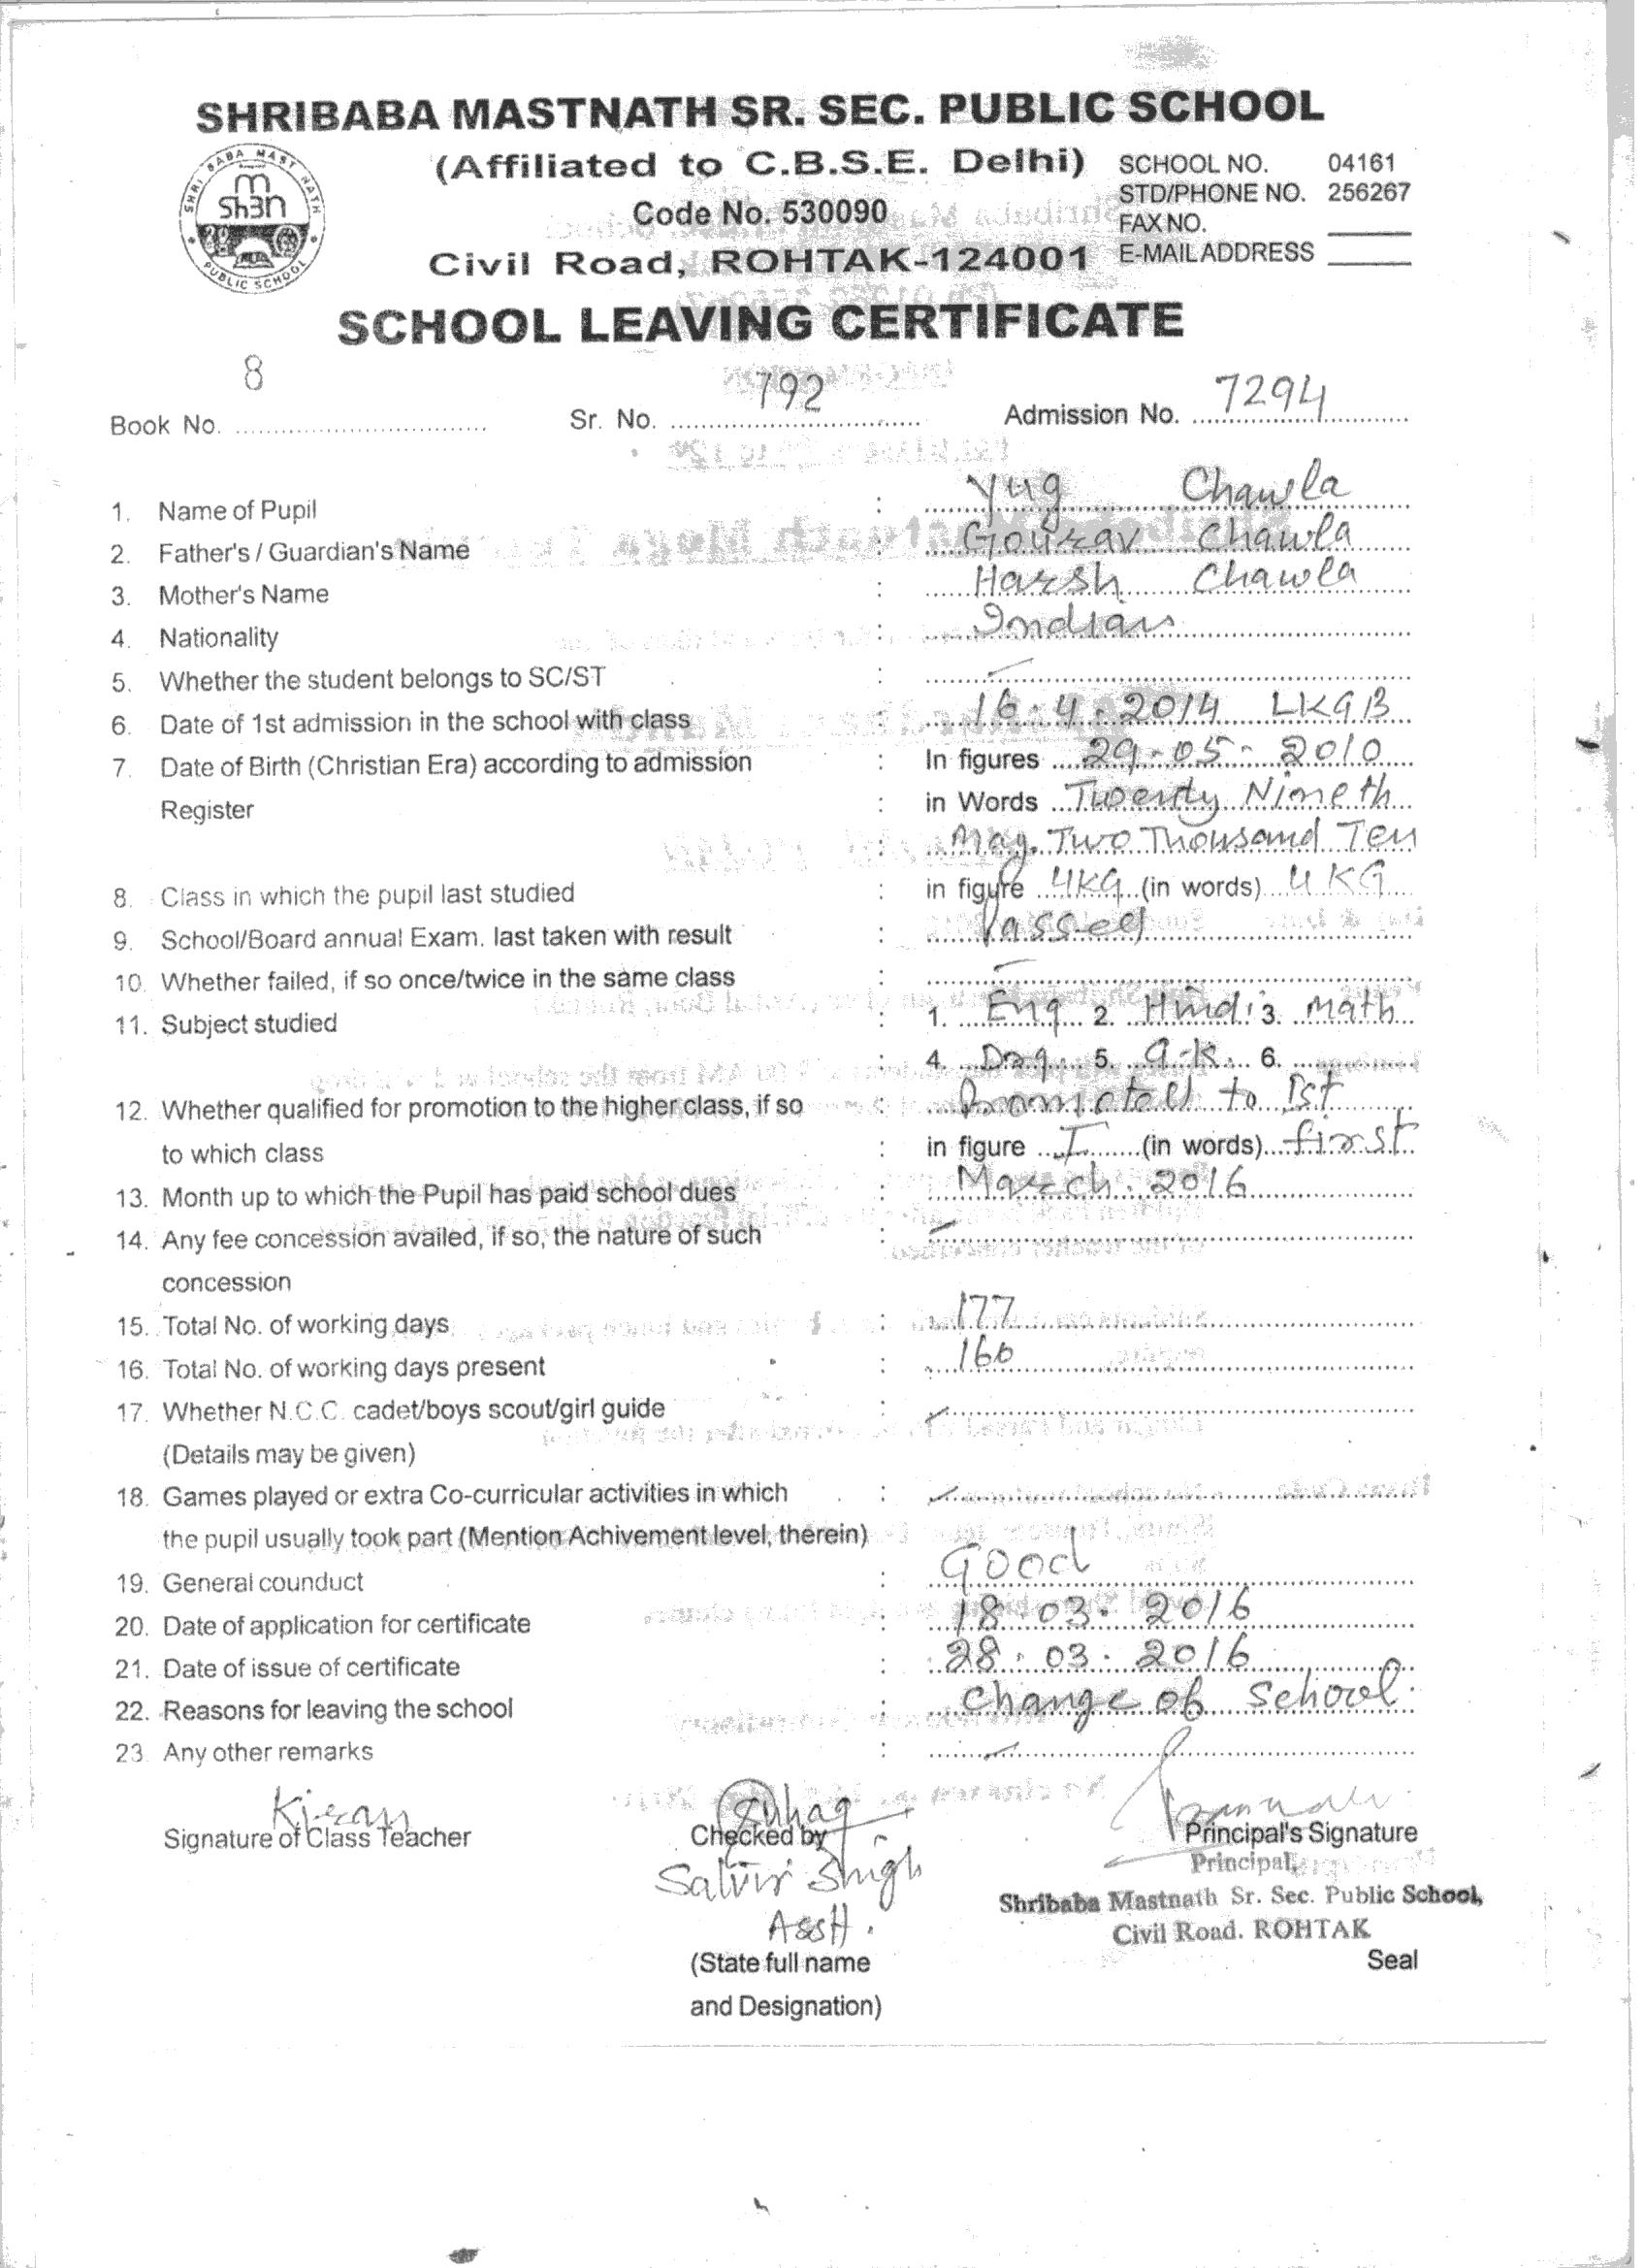 SHRIBABA MASTNATH SR. SEC. PUBLIC SCHOOL
SHRI BABA MAST NATH
PUBLIC SCHOOL
(Affiliated to C.B.S.E. Delhi)
Code No. 530090
Civil Road, ROHTAK-124001
SCHOOL NO. 04161
STD/PHONE NO. 256267
FAX NO.
E-MAIL ADDRESS
SCHOOL LEAVING CERTIFICATE
Book No. 8 Sr. No. 792 Admission No. 7294
1. Name of Pupil : Yug Chawla
2. Father's / Guardian's Name : Gourav Chawla
3. Mother's Name : Harsh Chawla
4. Nationality : Indian
5. Whether the student belongs to SC/ST :
6. Date of 1st admission in the school with class : 16-4-2014 LKG B
7. Date of Birth (Christian Era) according to admission : In figures 29-05-2010
Register : in Words Twenty Nineth
: May. Two Thousand Ten
8. Class in which the pupil last studied : in figure UKG (in words) UKG
9. School/Board annual Exam. last taken with result : Passed
10. Whether failed, if so once/twice in the same class :
11. Subject studied : 1. Eng 2. Hindi 3. Math
: 4. Drg. 5. G.K. 6.
12. Whether qualified for promotion to the higher class, if so : Promoted to Ist
to which class : in figure I (in words) first
13. Month up to which the Pupil has paid school dues : March. 2016
14. Any fee concession availed, if so, the nature of such :
concession
15. Total No. of working days : 177
16. Total No. of working days present : 160
17. Whether N.C.C. cadet/boys scout/girl guide :
(Details may be given)
18. Games played or extra Co-curricular activities in which :
the pupil usually took part (Mention Achivement level, therein)
19. General counduct : Good
20. Date of application for certificate : 18.03.2016
21. Date of issue of certificate : 28.03.2016
22. Reasons for leaving the school : Change of School.
23. Any other remarks :
Kiran
Signature of Class Teacher
Checked by
Satvir Singh
Asstt.
(State full name
and Designation)
Principal's Signature
Principal,
Shribaba Mastnath Sr. Sec. Public School,
Civil Road. ROHTAK
Seal